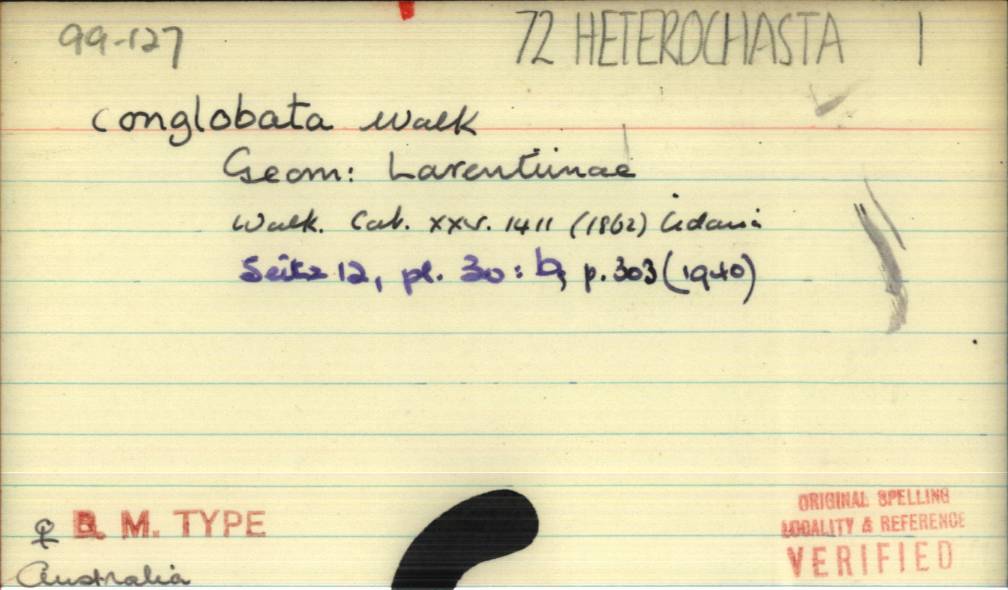 99-127
72 HETEROCHASTA 1
conglobata Walk
Geom: Larentiinae
Walk. Cat. xxv. 1411 (1862) Cidaria
Seitz 12, pl. 30: b, p. 303 (1940)
♀ B. M. TYPE
Australia
ORIGINAL SPELLING
LOCALITY & REFERENCE
VERIFIED